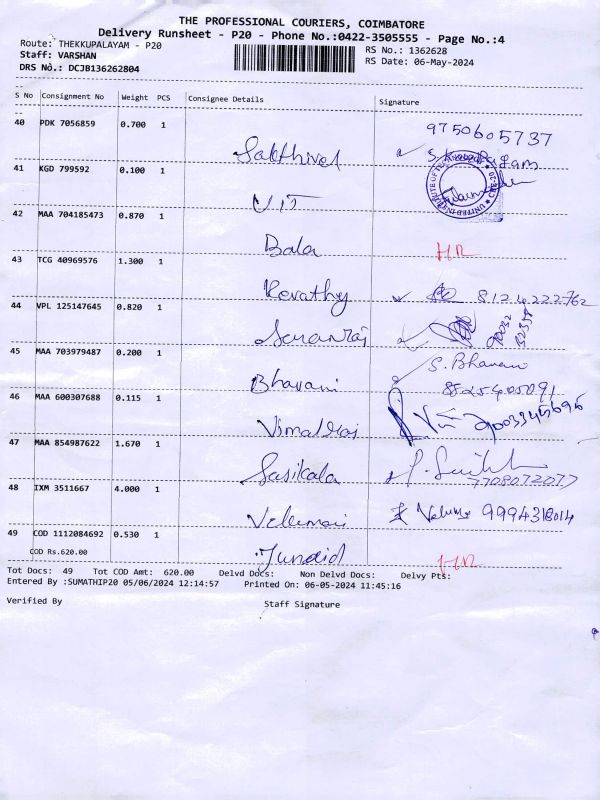 THE PROFESSIONAL COURIERS, COIMBATORE
Delivery Runsheet - P20 - Phone No.:0422-3505555 - Page No.:4
Route: THEKKUPALAYAM - P20
RS No.: 1362628
Staff: VARSHAN
RS Date: 06-May-2024
DRS No.: DCJB136262804
S No Consignment No Weight PCS Consignee Details Signature
40 PDK 7056859 0.700 1 Sakthivel 9750605737
41 KGD 799592 0.100 1 UIT
42 MAA 704185473 0.870 1 Bala H.R
43 TCG 40969576 1.300 1 Revathy 8124222762
44 VPL 125147645 0.820 1 Saranraj
45 MAA 703979487 0.200 1 Bhavani S. Bhavani
46 MAA 600307688 0.115 1 Vimalraj
47 MAA 854987622 1.670 1 Sasikala 7708072077
48 IXM 3511667 4.000 1 Velumani
49 COD 1112084692 0.530 1 Junaid H.R
COD Rs.620.00
Tot Docs: 49 Tot COD Amt: 620.00 Delvd Docs: Non Delvd Docs: Delvy Pts:
Entered By :SUMATHIP20 05/06/2024 12:14:57 Printed On: 06-05-2024 11:45:16
Verified By Staff Signature